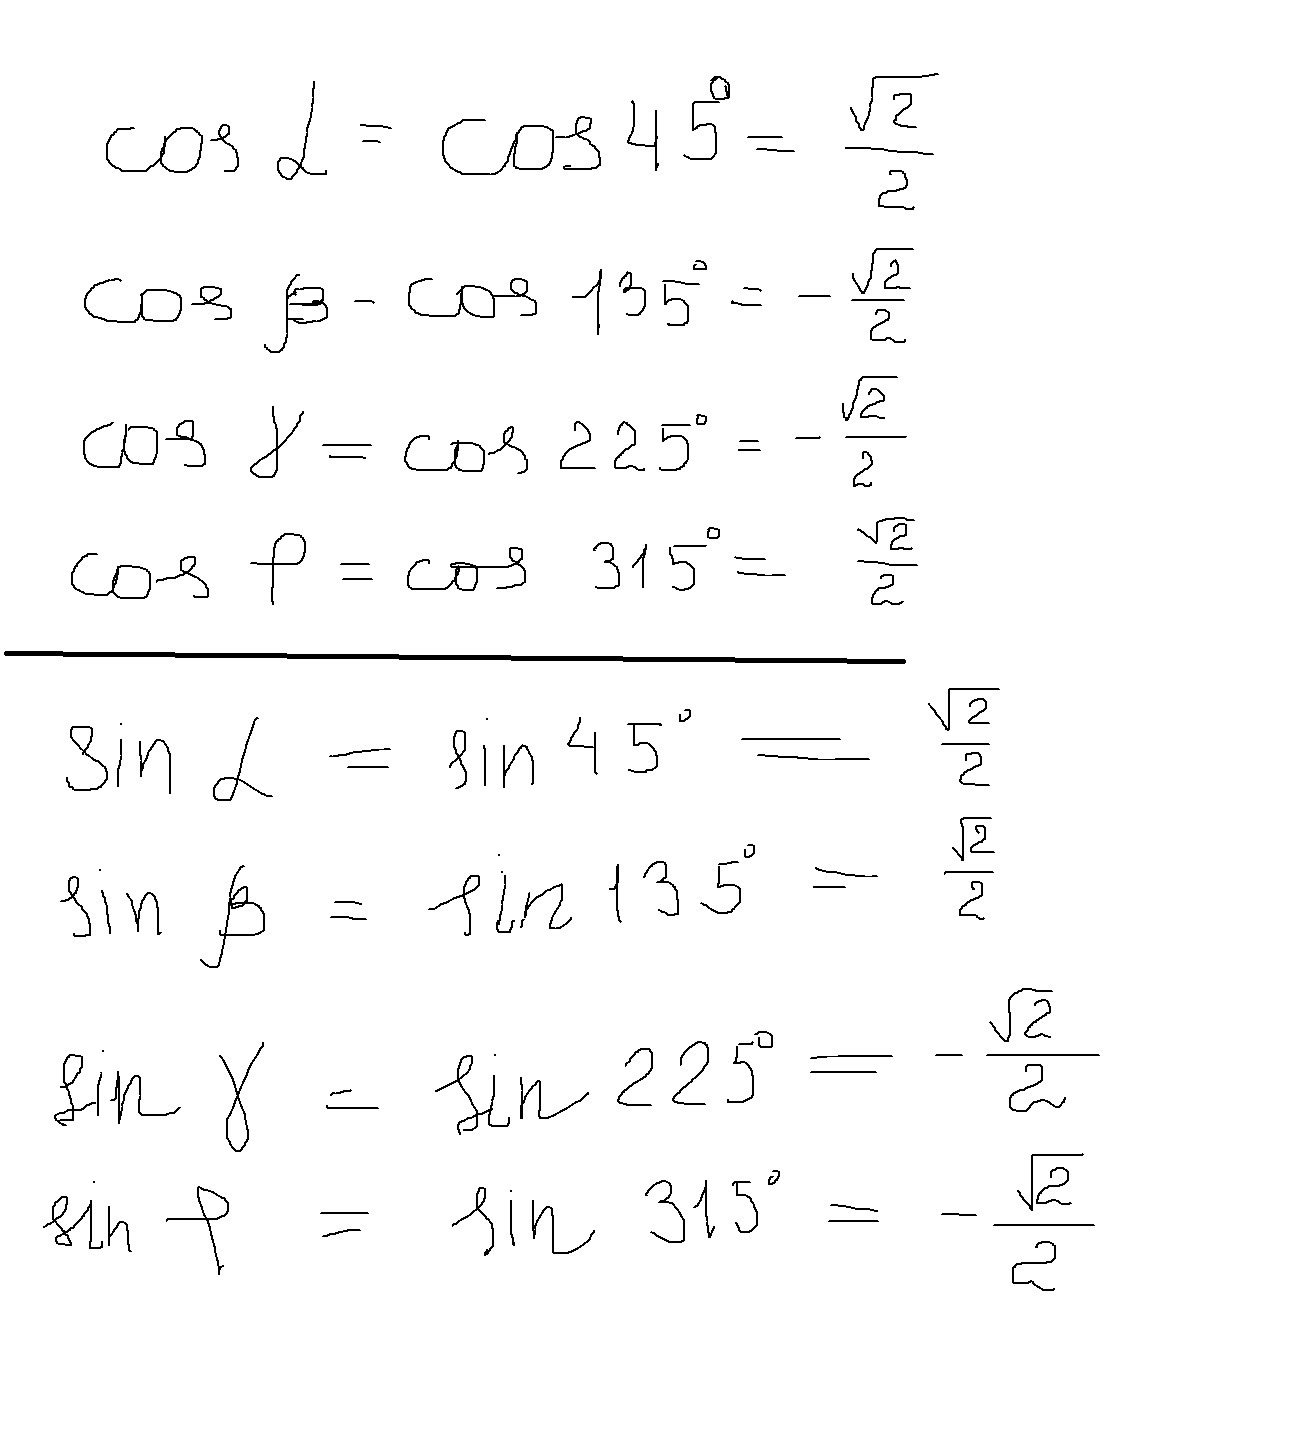 cos α = cos 45° = √2/2
cos β - cos 135° = -√2/2
cos γ = cos 225° = -√2/2
cos φ = cos 315° = √2/2
sin α = sin 45° = √2/2
sin β = sin 135° = √2/2
sin γ = sin 225° = -√2/2
sin φ = sin 315° = -√2/2